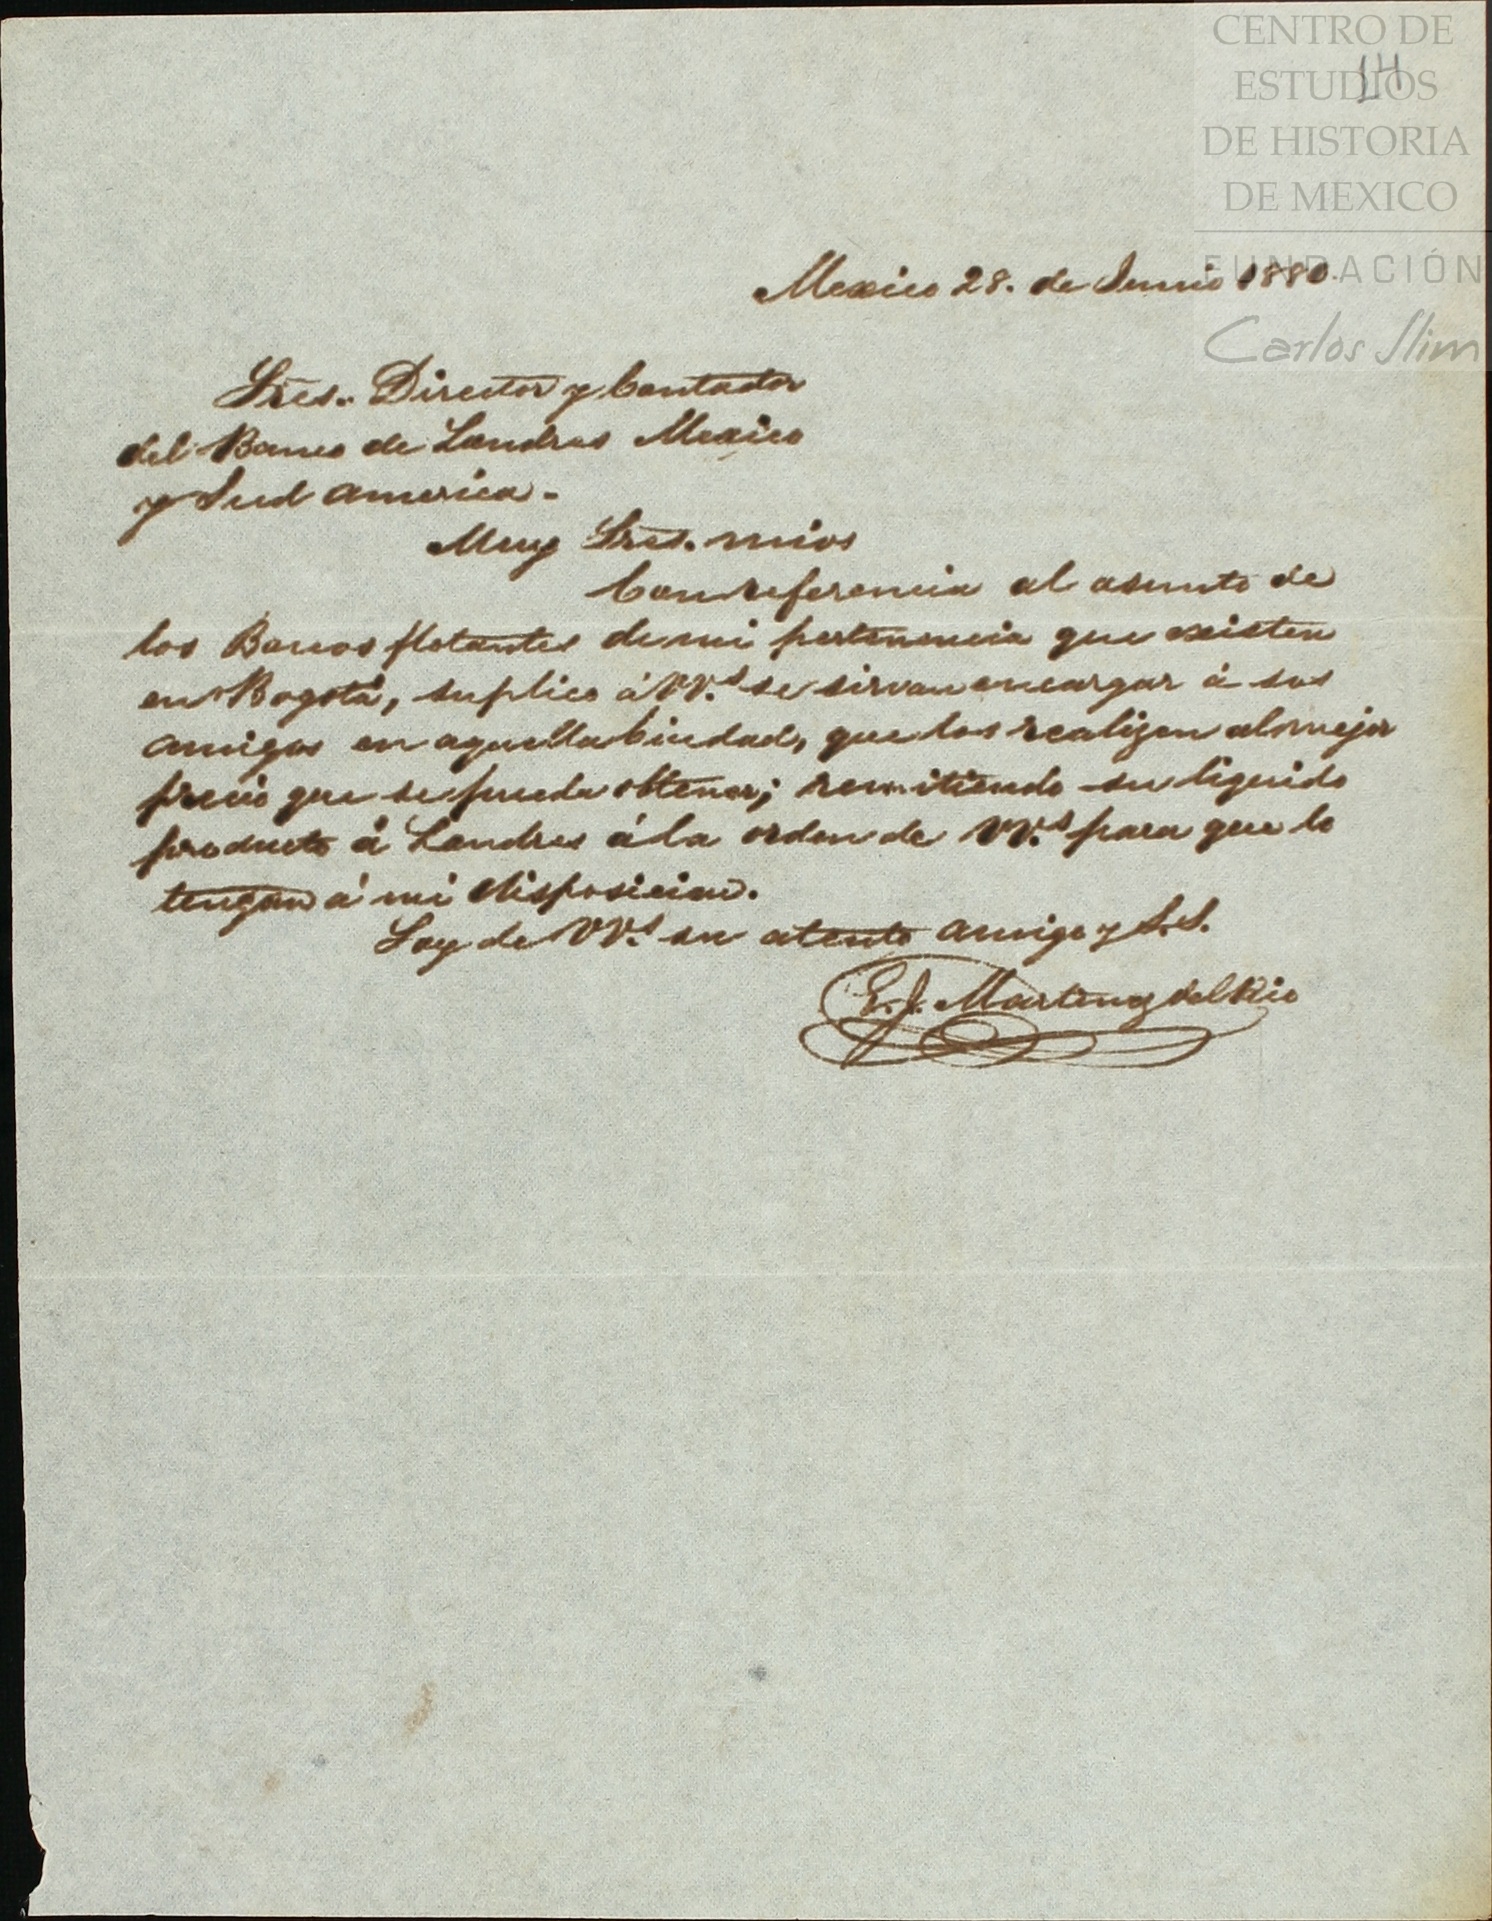 CENTRO DE
ESTUDIOS
DE HISTORIA
DE MEXICO
FUNDACIÓN
Carlos Slim
14
Mexico 28. de Junio 1880.
Sres. Director y Contador
del Banco de Londres Mexico
y Sud America.
Muy Sres. mios
Con referencia al asunto de
los Barcos flotantes de mi pertenencia que existen
en Bogotá, suplico á VV.s se sirvan encargar á sus
amigos en aquella Ciudad, que los realizen al mejor
precio que se pueda obtener; remitiendo su liquido
producto á Londres á la orden de VV.s para que lo
tengan á mi disposicion.
Soy de VV.s su atento amigo y S.S.
E. J. Martinez del Rio